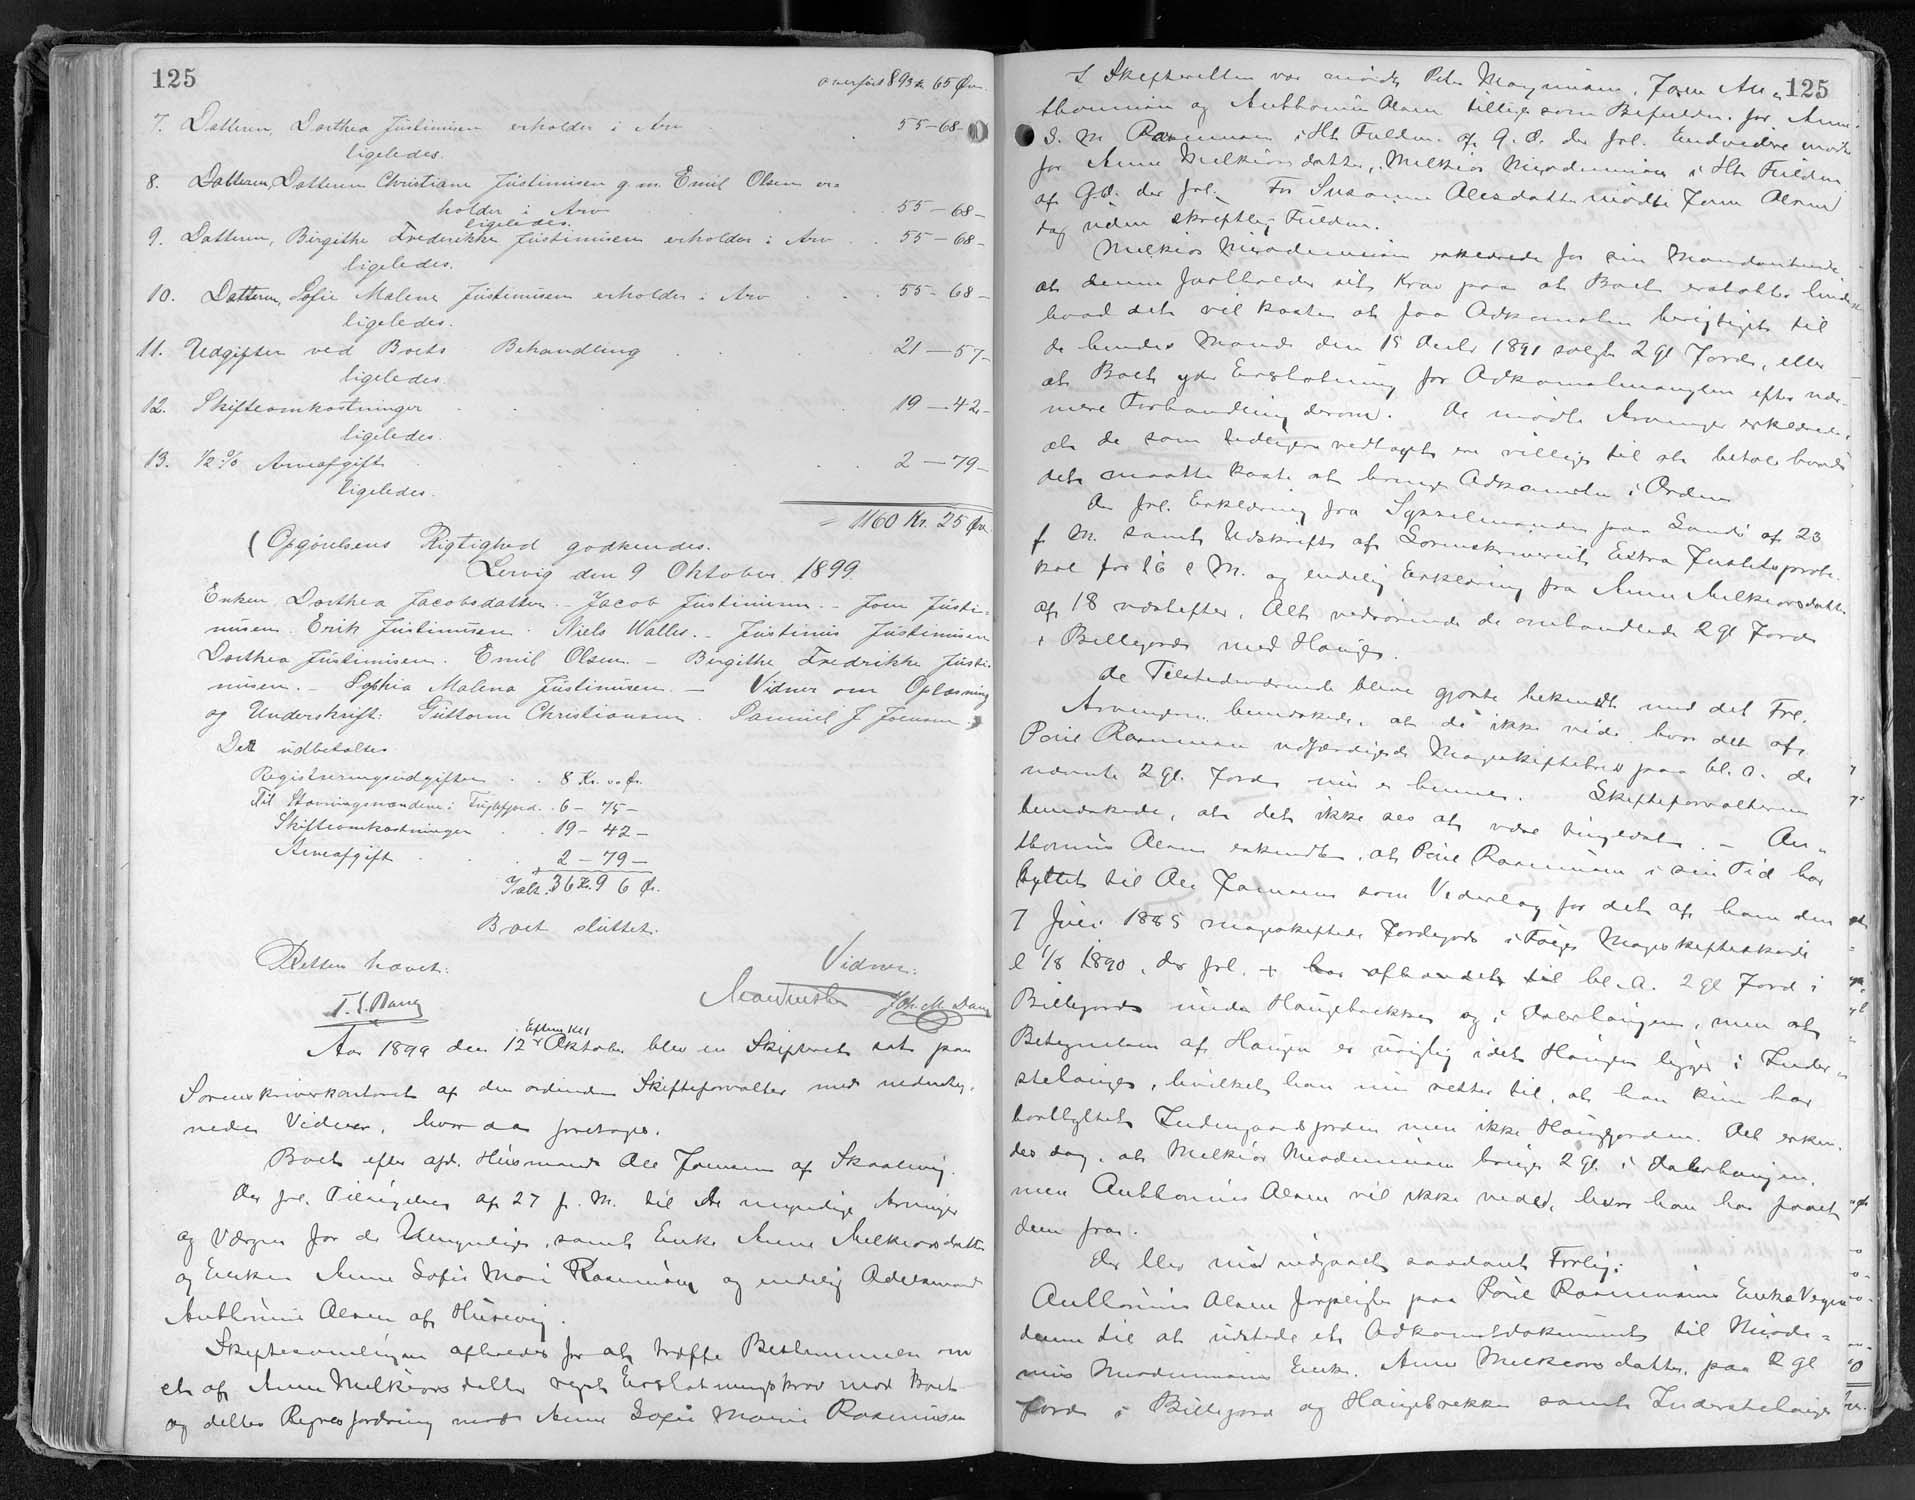 125
overført 893 Kr 65 Ør.
7. Datteren, Dorthea Justinussen erholder i Arv . . 55-68-
ligeledes.
8. Datteren, Datteren Christiane Justinussen g. m. Emil Olsen er=
holder i Arv . . . 55-68-
ligeledes.
9. Datteren, Birgithe Frederikke Justinussen erholder i Arv . . 55-68-
ligeledes.
10. Datteren, Sofie Malene Justinussen erholder i Arv . . . 55-68-
ligeledes.
11. Udgifter ved Boets Behandling . . . 21-57-
ligeledes.
12. Skifteomkostninger . . . 19-42-
ligeledes.
13. 1/2 % Arveafgift . . . 2-79-
ligeledes.
= 1160 Kr. 25 Ør.
(Opgörelsens Rigtighed godkendes.
Lervig den 9 Oktober 1899.
Enken Dorthea Jacobsdatter - Jacob Justinussen - Joen Justi=
nussen. Erik Justinussen. Niels Walles. - Justinus Justinussen
Dorthea Justinussen. Emil Olsen. - Birgithe Fredrikke Justi=
nussen. - Sophia Malena Justinussen. - Vidner om Oplæsning
og Underskrift: Guttorm Christiansen. Samuel J Joensen.)
Der udbetaltes
Registreringsudgifter . . 8 Kr. 00 Ør.
Til Stævningsmændene i Fuglefjord . 6 - 75 -
Skifteomkostninger . . 19 - 42 -
Arveafgift . . . 2 - 79 -
Ialt. 36 Kr. 96 Ør.
Boet sluttet.
Retten hævet.
Vidner:
Joh. M. Dam
Eftm. Kl 1
Aar 1899 den 12 Oktober blev en Skifteret sat paa
Sorenskriverkontoret af den ordinære Skifteforvalter med underteg=
nede Vidner, hvor da foretoges.
Boet efter afd. Husmand Ole Joensen af Skaalevig.
Der frl. Tilsigelse af 27 f. M. til de myndige Arvinger
og Værger for de Umyndige, samt Enke Anne Melkiorsdatter
og Enken Anne Sofie Marie Rasmussen og endelig Odelsmand
Anthonius Olsen af Husevig.
Skiftesamlingen afholdes for at træffe Bestemmelse om
et af Anne Melkiorsdatter rejst Erstatningskrav mod Boet
og dettes Regresfordring mod Anne Sofie Marie Rasmussen
125
I Skifteretten var mødt Peter Magnussen, Joen An=
thoniussen og Anthonius Olsen tillige som Befuldm. for Anne
S. M Rasmussen i Ht Fuldm. af G. D. der frl. Endvidere mødte
for Anne Melkiorsdatter, Melkior Nicodemussen i Ht Fuldm
af G.D. der frl. For Susanne Olesdatter mødte Joen Olsen
dog uden skriftlig Fuldm.
Melkior Nicodemussen erklærede for sin Mandantinde
at denne fastholder sit Krav paa at Boet erstatter hende
hvad det vil koste at faa Adkomsten berigtiget til
de hendes Mand den 15 Decbr 1891 solgte 2 gl Jord, eller
at Boet yder Erstatning for Adkomstmanglen efter nær=
mere Forhandling derom. De mødte Arvinger erklærede,
at de som tidligere vedtaget ere villige til at betale hvad
det maatte koste at bringe Adkomsten i Orden
Der frl. Erklæring fra Sysselmanden paa Sandø af 23
f. M. samt Udskrift af Sorenskriveriets Extra Justitsproto=
kol for 16 e M. og endelig Erklæring fra Anne Melkiorsdatter
af 18 næstefter, Alt vedrørende de omhandlede 2 gl Jord
i Billegjord med Hauge.
De Tilstedeværende bleve gjorte bekendt med det Frl.
Arvingerne bemærkede, at de ikke vide, hvor det af
Poul Rasmussen udfærdigede Mageskiftebrev paa bl. a. de
nævnte 2 gl. Jord nu er henne. Skifteforvalteren
bemærkede, at det ikke ses at være tinglæst. - An=
thonius Olsen erkendte, at Poul Rasmussen i sin Tid har
byttet til Ole Joensen som Vederlag for det af ham den
7 Juli 1885 mageskiftede Jordegods i Følge Mageskifteskøde
1/8 1890, der frl. + har afhændet til bl. A. 2 gl Jord i
Billegjord under Haugebrekke og i Dalerhaugen, men at
Betegnelsen af Haugen er urigtig idet Haugen ligger i Inder=
stehauge, hvilket han nu retter til, at han kun har
bortbyttet Indengaardsjorden men ikke Haugejorden. Det erken=
des dog, at Melkior Nicodemussen bruger 2 gl. i Dalerhaugen,
men Anthonius Olsen vil ikke vide, hvor han har faaet
dem fra.
Der blev nu indgaaet saadant Forlig:
Anthonius Olsen forpligter paa Poul Rasmussens Enkes Vegne
denne til at udstede et Adkomstdokument til Nicode=
mus Nicodemussens Enke, Anne Melkiorsdatter, paa 2 gl
Jord i Billegjord og Haugebrekke samt Inderstehauge